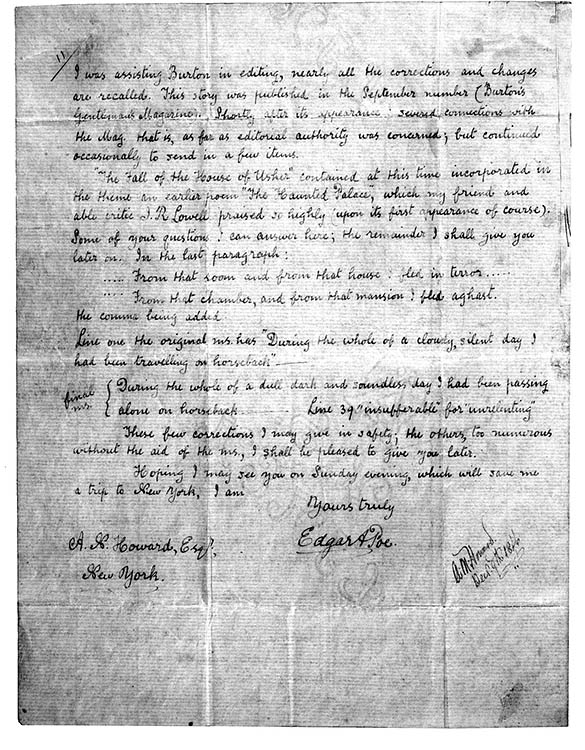 11
I was assisting Burton in editing, nearly all the corrections and changes
are recalled. This story was published in the September number (Burton's
Gentleman's Magazine). Shortly after its appearance I severed connections with
the Mag. that is, as far as editorial authority was concerned; but continued
occasionally to send in a few items.
"The Fall of the House of Usher" contained at this time incorporated in
the theme an earlier poem "The Haunted Palace", which my friend and
able critic J. R. Lowell praised so highly (upon its first appearance of course).
Some of your questions I can answer here; the remainder I shall give you
later on. In the last paragraph:
..... From that room and from that house I fled in terror.....
..... From that chamber, and from that mansion I fled aghast.
the comma being added.
Line one the original ms. has "During the whole of a cloudy, silent day I
had been travelling on horseback"
final ms. { During the whole of a dull dark and soundless day I had been passing
alone on horseback Line 39 "insufferable" for "unrelenting"
These few corrections I may give in safety; the others, too numerous
without the aid of the ms., I shall be pleased to give you later.
Hoping I may see you on Sunday evening, which will save me
a trip to New York, I am
Yours truly
Edgar A Poe.
A. N. Howard, Esqr.
New York.